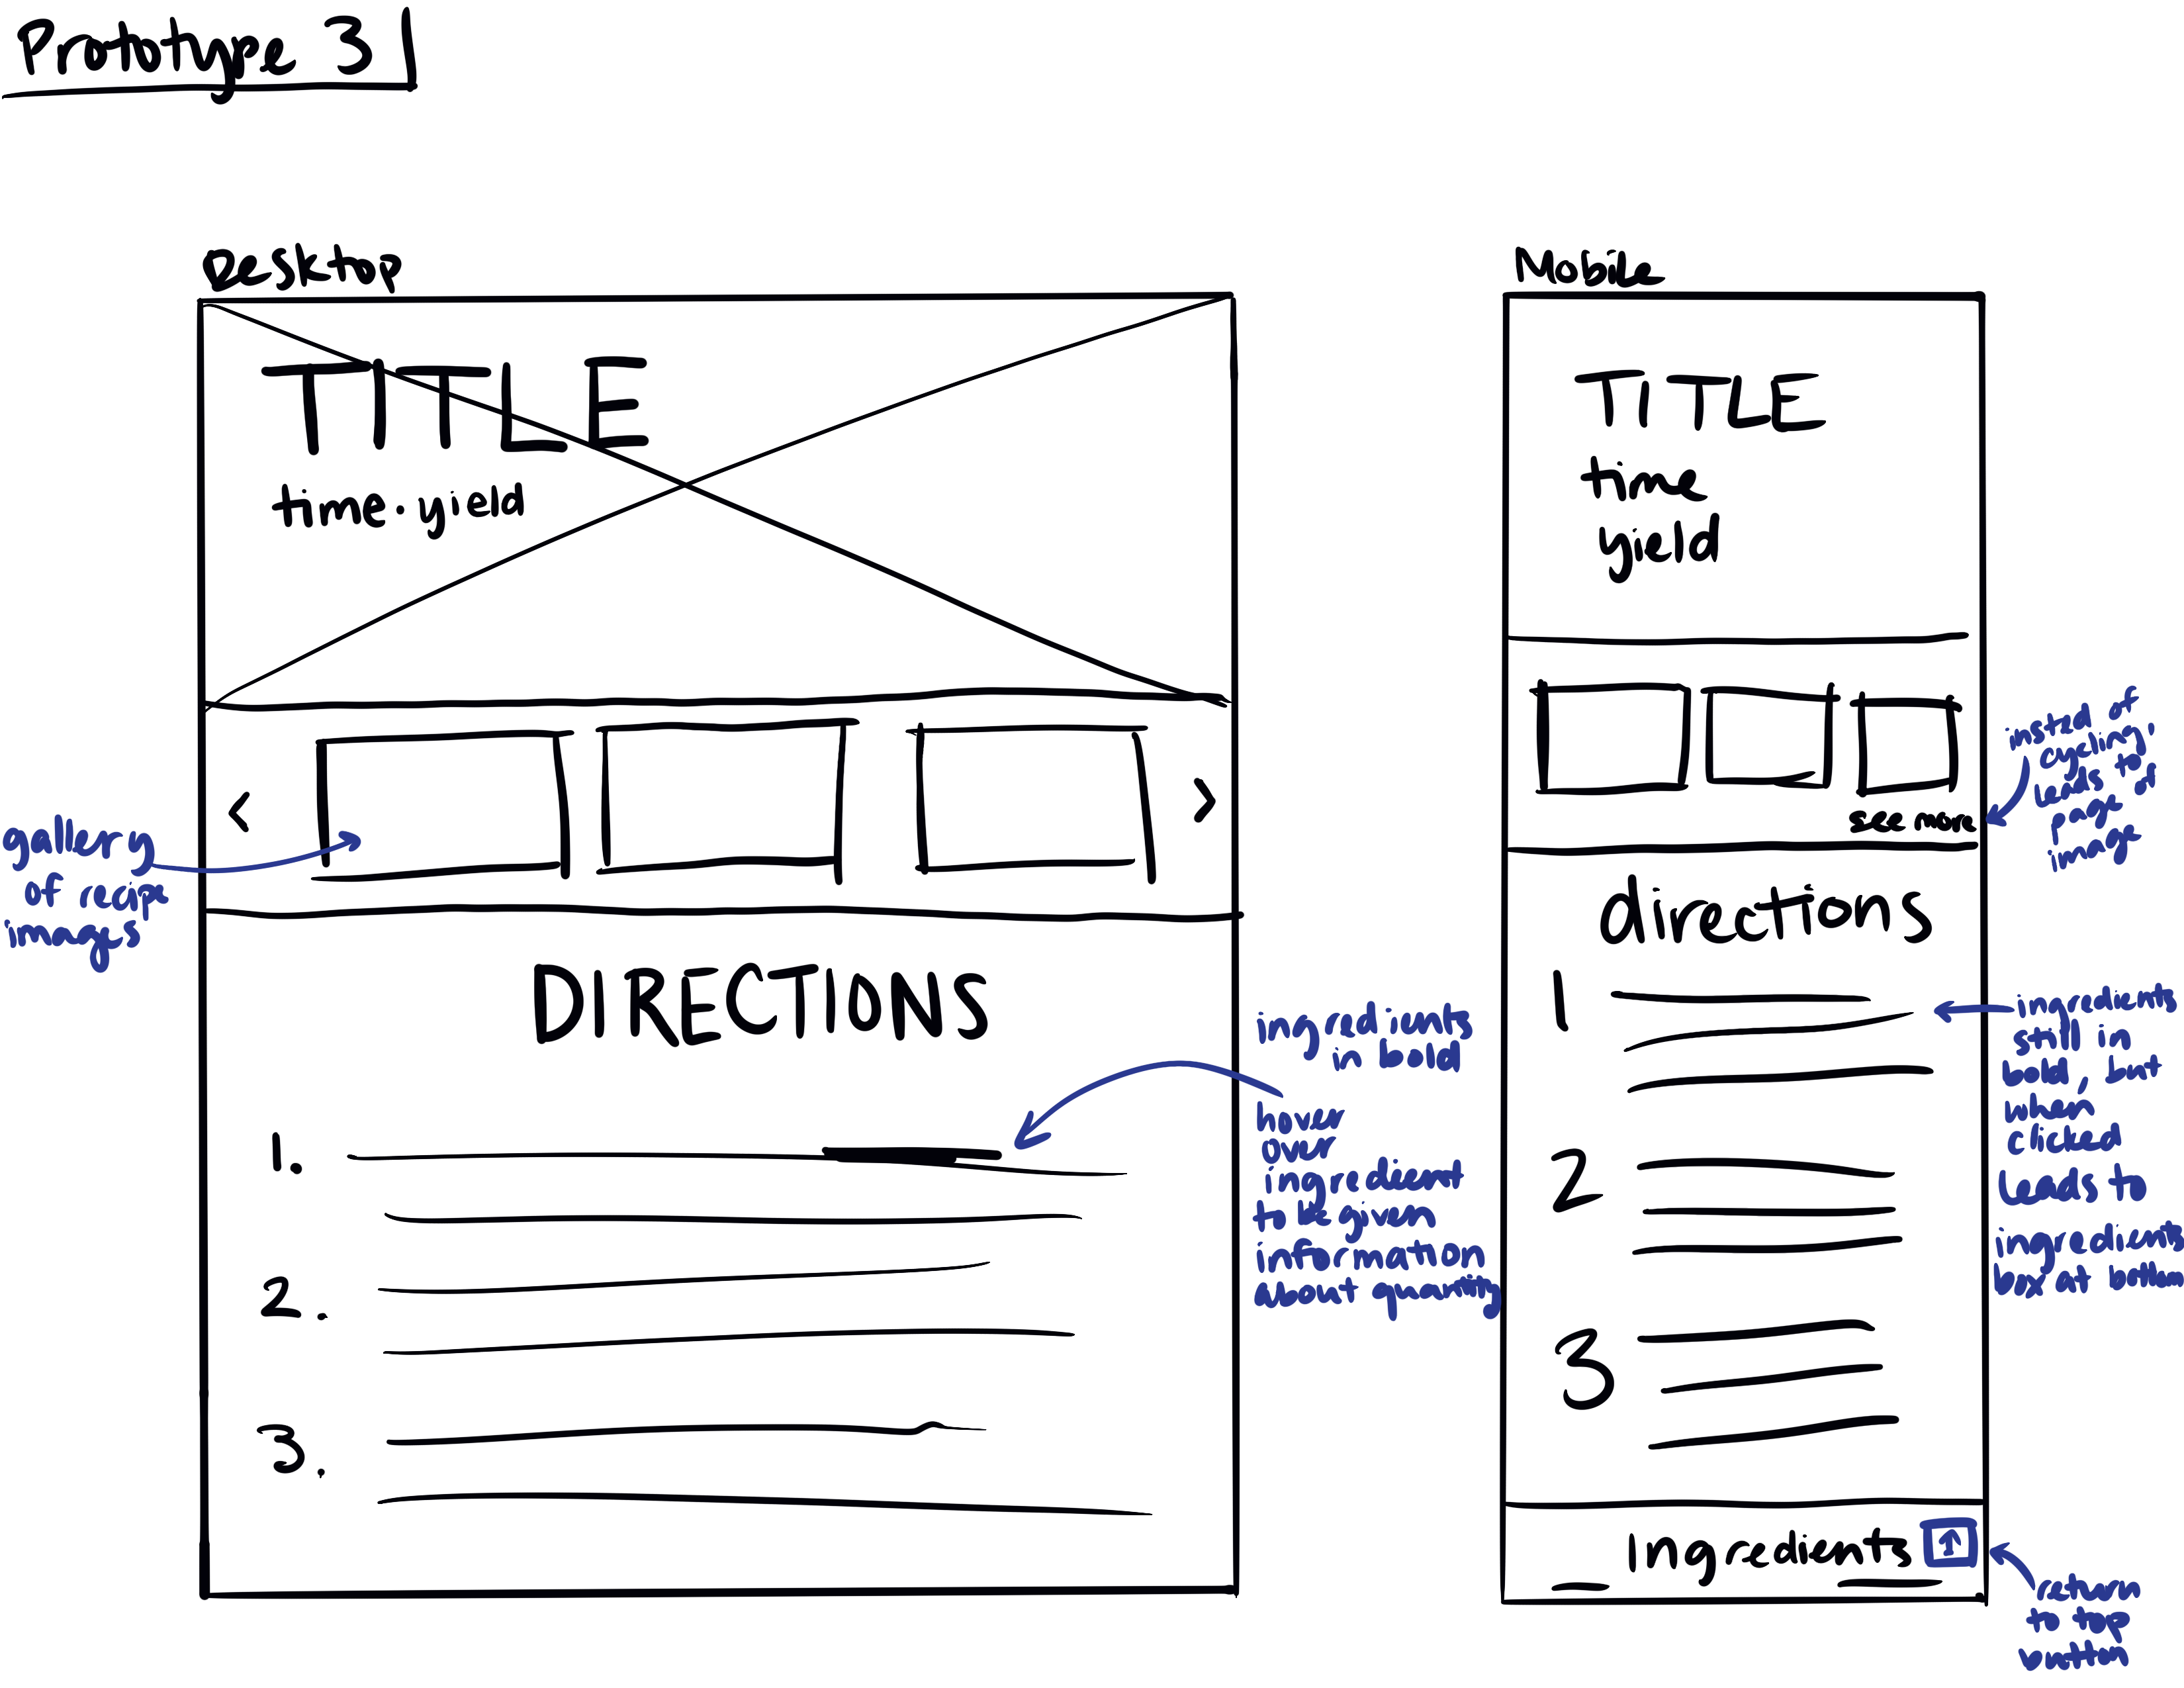 Prototype 3
Desktop
TITLE
time · yield
<
>
gallery
of recipe
images
DIRECTIONS
1.
2.
3.
ingredients
in bold
hover
over
ingredient
to be given
information
about quantity
Mobile
TITLE
time
yield
see more
insted of
cycling,
leads to
page of
image
directions
1
2
3
ingredients
still in
bold, but
when
clicked
leads to
ingredients
box at bottom
Ingredients ↑
return
to top
button